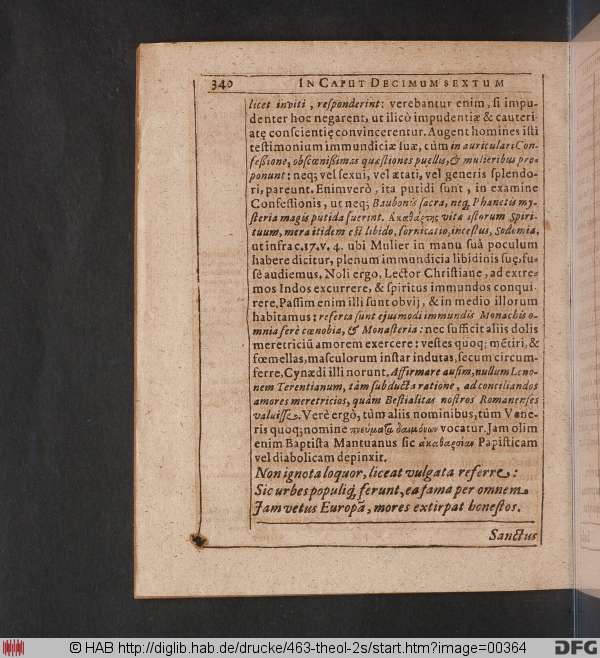 340 IN CAPUT DECIMUM SEXTUM
licet inviti, responderint: verebantur enim, si impu-
denter hoc negarent, ut ilicò impudentiæ & cauteri-
atę conscientię convincerentur. Augent homines isti
testimonium immundiciæ suæ, cùm in auriculari Con-
feßione, obscœnißimas quæstiones puellis, & mulieribus pro-
ponunt: neq; vel sexui, vel ætati, vel generis splendo-
ri, pareunt. Enimverò, ita putidi sunt, in examine
Confessionis, ut neq; Baubonis sacra, neq; Phanetis my-
steria magis putida fuerint. Ακαθάρτης vita istorum Spiri-
tuum, mera itidem est libido, fornicatio, incestus, Sodomia,
ut infra c. 17. v. 4. ubi Mulier in manu suâ poculum
habere dicitur, plenum immundicia libidinis suę, fu-
sè audiemus. Noli ergo, Lector Christiane, ad extre-
mos Indos excurrere, & spiritus immundos conqui-
rere. Passim enim illi sunt obvij, & in medio illorum
habitamus: referta sunt ejusmodi immundis Monachis o-
mnia ferè cœnobia, & Monasteria: nec sufficit aliis dolis
meretriciũ amorem exercere: vestes quoq; mẽtiri, &
fœmellas, masculorum instar indutas, secum circum-
ferre. Cynædi illi norunt. Affirmare ausim, nullum Leno-
nem Terentianum, tàm subductâ ratione, ad conciliandos
amores meretricios, quàm Bestialitas nostros Romanenses
valuisse. Verè ergò, tùm aliis nominibus, tùm Vene-
ris quoq; nomine πνεύματα δαιμόνων vocatur. Jam olim
enim Baptista Mantuanus sic ἀκαθαρσίαν Papisticam
vel diabolicam depinxit.
Non ignota loquor, liceat vulgata referre:
Sic urbes populiq; ferunt, ea fama per omnem
Jam vetus Europã, mores extirpat honestos.
Sanctus
© HAB http://diglib.hab.de/drucke/463-theol-2s/start.htm?image=00364
DFG